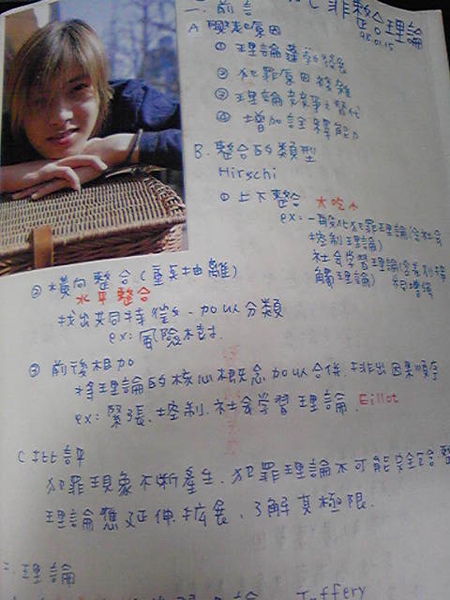 犯罪整合理論
95.01.15
一. 前言
A 興起原因
① 理論蓬勃發展
② 犯罪原因複雜
③ 理論競爭之替代
④ 增加詮釋能力
B. 整合的類型
Hirschi
① 上下整合 大吃小
ex: 一般化犯罪理論(含社會
控制理論)
社會學習理論(含差別接
觸理論)
② 橫向整合(重其抽離)
水平整合
找出共同特徵、加以分類
ex: 風險
③ 前後相加
將理論的核心概念加以合併、排出因果順序
ex: 緊張、控制、社會學習理論. Elliot
C 批評
犯罪現象不斷產生. 犯罪理論不可能完全整
理論應延伸拓展、了解其極限.
二. 理論
Jeffery